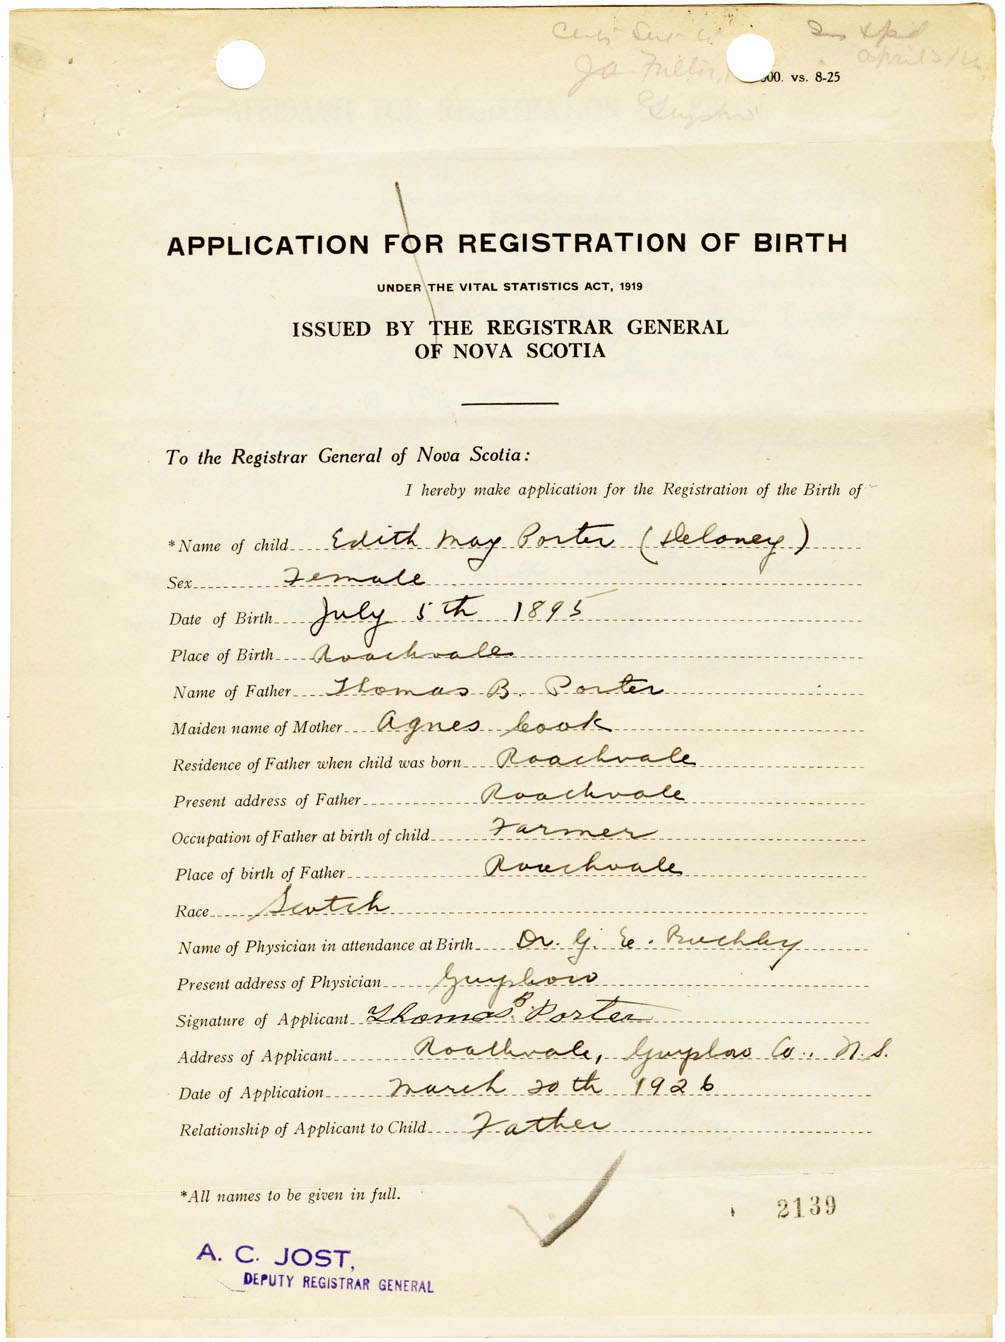 J A Fulton
000. vs. 8-25
APPLICATION FOR REGISTRATION OF BIRTH
UNDER THE VITAL STATISTICS ACT, 1919
ISSUED BY THE REGISTRAR GENERAL
OF NOVA SCOTIA
To the Registrar General of Nova Scotia:
I hereby make application for the Registration of the Birth of
*Name of child Edith May Porter (Deloney)
Sex Female
Date of Birth July 5th 1895
Place of Birth Roachvale
Name of Father Thomas B. Porter
Maiden name of Mother Agnes Cook
Residence of Father when child was born Roachvale
Present address of Father Roachvale
Occupation of Father at birth of child Farmer
Place of birth of Father Roachvale
Race Scotch
Name of Physician in attendance at Birth Dr. G. E. Buckley
Present address of Physician Guysboro
Signature of Applicant Thomas B. Porter
Address of Applicant Roachvale, Guysboro Co., N.S.
Date of Application March 20th 1926
Relationship of Applicant to Child Father
*All names to be given in full.
2139
A. C. JOST,
DEPUTY REGISTRAR GENERAL